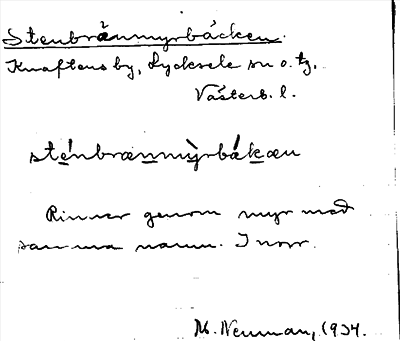 Stenbrännmyrbäcken.
Knaftens by, Lycksele sn o. tg.
Västerb. l.
sténbrænmỳrbákæn
Rinner genom myr med
samma namn. I norr.
M. Neuman, 1934.